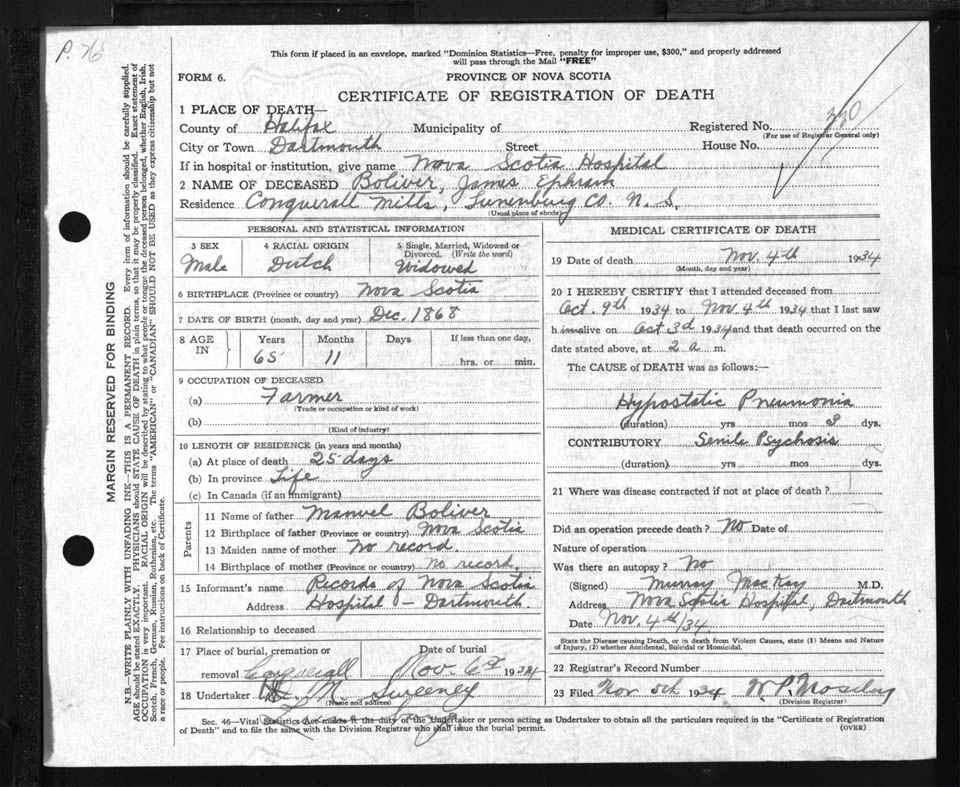 P. 76
This form if placed in an envelope, marked "Dominion Statistics—Free, penalty for improper use, $300," and properly addressed
will pass through the Mail "FREE"
FORM 6.
PROVINCE OF NOVA SCOTIA
CERTIFICATE OF REGISTRATION OF DEATH
MARGIN RESERVED FOR BINDING
N.B.—WRITE PLAINLY WITH UNFADING INK—THIS IS A PERMANENT RECORD. Every item of information should be carefully supplied.
AGE should be stated EXACTLY. PHYSICIANS should STATE CAUSE OF DEATH in plain terms, so that it may be properly classified. Exact statement of
OCCUPATION is very important. RACIAL ORIGIN will be described by stating to what people or tongue the deceased person belonged, whether English, Irish,
Scotch, French, German, Russian, Ruthenian, etc. The terms "AMERICAN" or "CANADIAN" SHOULD NOT BE USED as they express citizenship but not
a race or people. Fee instructions on back of Certificate.
1 PLACE OF DEATH—
County of Halifax Municipality of Registered No. 220
(For use of Registrar General only)
City or Town Dartmouth Street House No.
If in hospital or institution, give name Nova Scotia Hospital
2 NAME OF DECEASED Boliver, James Ephram
Residence Conquerall Mills, Lunenburg Co. N.S.
(Usual place of abode)
PERSONAL AND STATISTICAL INFORMATION
3 SEX 4 RACIAL ORIGIN 5 Single, Married, Widowed or
Divorced. (Write the word)
Male Dutch Widowed
6 BIRTHPLACE (Province or country) Nova Scotia
7 DATE OF BIRTH (month, day and year) Dec. 1868
8 AGE IN Years Months Days If less than one day,
65 11 hrs. or min.
9 OCCUPATION OF DECEASED
(a) Farmer
(Trade or occupation or kind of work)
(b)
(Kind of industry)
10 LENGTH OF RESIDENCE (in years and months)
(a) At place of death 25 days
(b) In province Life
(c) In Canada (if an immigrant)
Parents
11 Name of father Manuel Boliver
12 Birthplace of father (Province or country) Nova Scotia
13 Maiden name of mother No record.
14 Birthplace of mother (Province or country) No record.
15 Informant's name Records of Nova Scotia
Address Hospital — Dartmouth
16 Relationship to deceased
17 Place of burial, cremation or Date of burial
removal Conquerall Nov. 6th 1934
18 Undertaker R. Sweeney
(Name and address)
MEDICAL CERTIFICATE OF DEATH
19 Date of death Nov. 4th 1934
(Month, day and year)
20 I HEREBY CERTIFY that I attended deceased from
Oct. 9th 1934 to Nov 4th 1934 that I last saw
him alive on Oct 3d 1934 and that death occurred on the
date stated above, at 2 a m.
The CAUSE of DEATH was as follows:—
Hypostatic Pneumonia
(duration) yrs mos 3 dys.
CONTRIBUTORY Senile Psychosis
(duration) yrs mos dys.
21 Where was disease contracted if not at place of death?
Did an operation precede death? No Date of
Nature of operation
Was there an autopay? No
(Signed) Murray MacKay M.D.
Address Nova Scotia Hospital, Dartmouth
Date Nov. 4th/34.
State the Disease causing Death, or in death from Violent Causes, state (1) Means and Nature
of Injury, (2) whether Accidental, Suicidal or Homicidal.
22 Registrar's Record Number
23 Filed Nov 5th 1934 W.P. Moseley
(Division Registrar)
Sec. 46—Vital Statistics Act makes it the duty of the Undertaker or person acting as Undertaker to obtain all the particulars required in the "Certificate of Registration
of Death" and to file the same with the Division Registrar who shall issue the burial permit.
(OVER)